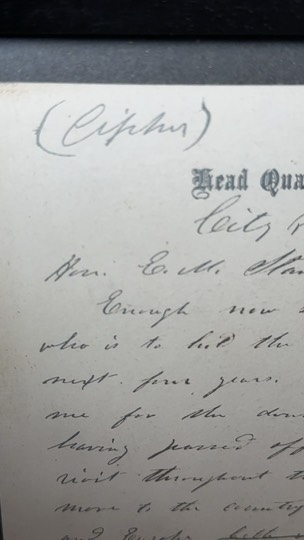 (Cipher)
Head Qua
City P
Hon. E. M. Stan
Enough now
who is to be the
next four years.
me for the dou
having passed off
riot throughout t
move to the country
and Europe